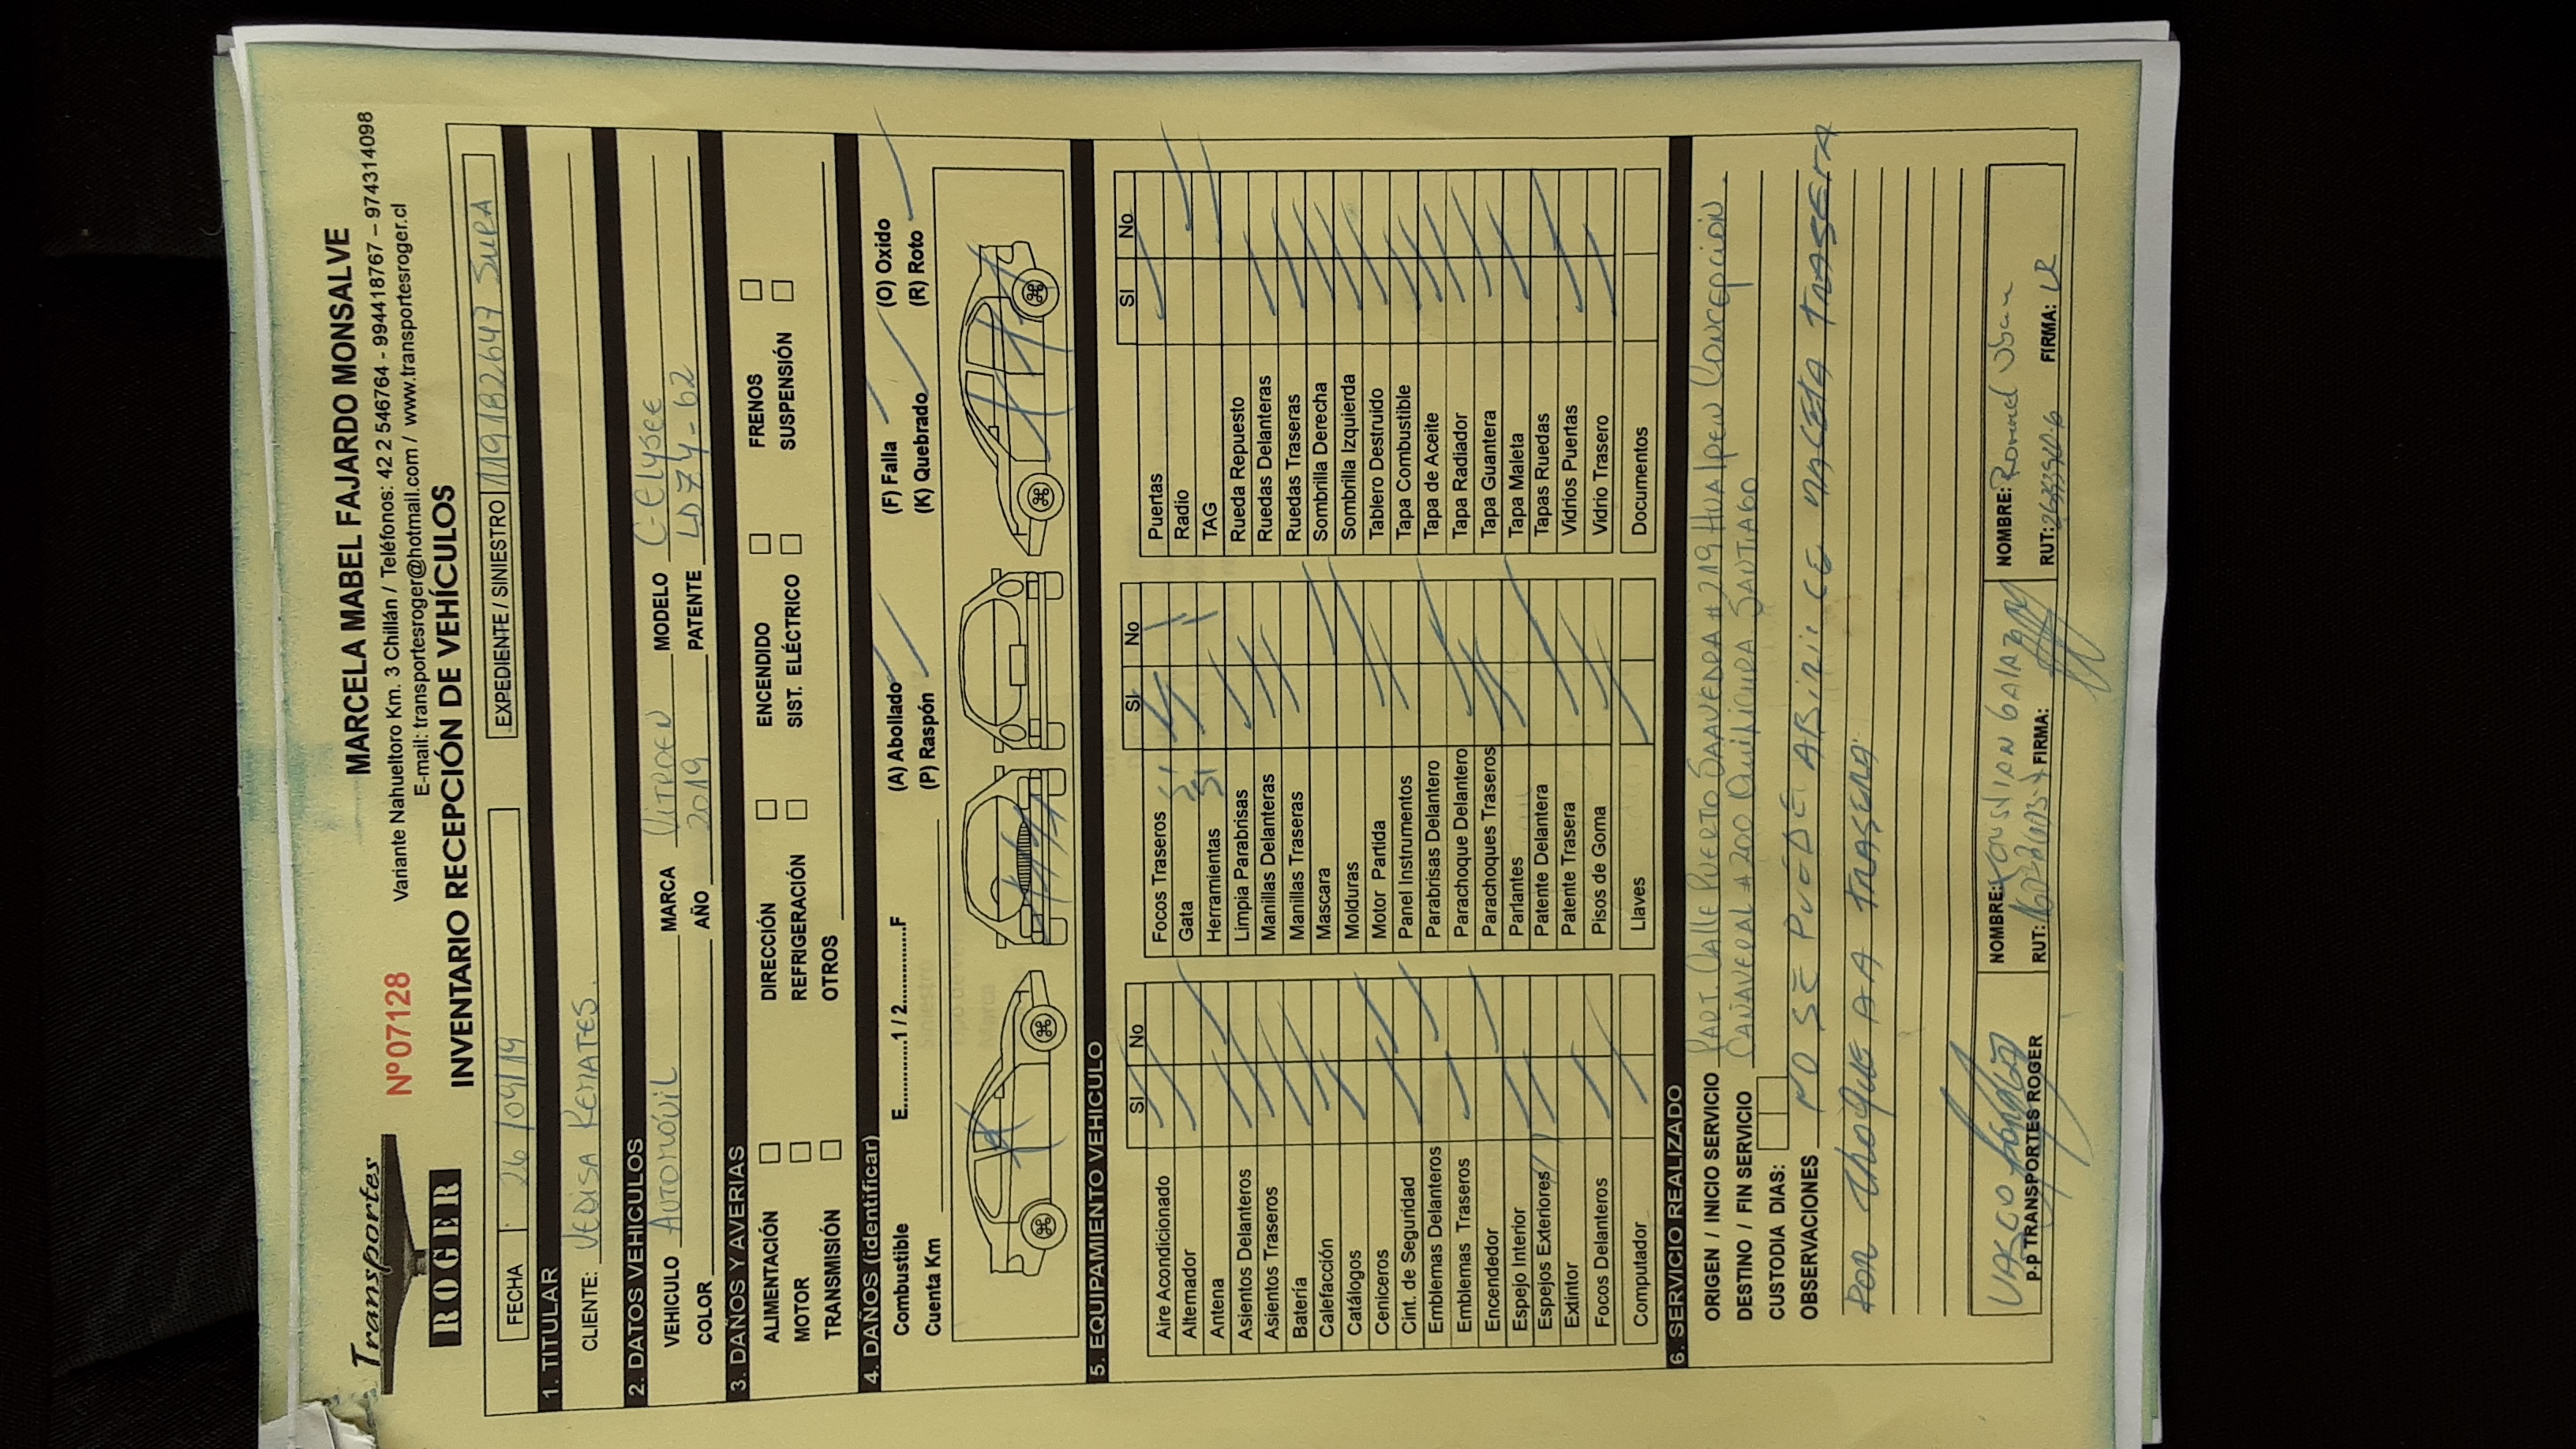 Transportes
ROGER
Nº 07128
MARCELA MABEL FAJARDO MONSALVE
Variante Nahueltoro Km. 3 Chillán / Teléfonos: 42 2 546764 - 994418767 – 974314098
E-mail: transportesroger@hotmail.com / www.transportesroger.cl
INVENTARIO RECEPCIÓN DE VEHÍCULOS
FECHA 26/09/19 EXPEDIENTE / SINIESTRO SURA
1. TITULAR
CLIENTE: VEDISA REMATES.
2. DATOS VEHICULOS
VEHICULO AUTOMÓVIL MARCA CITROEN MODELO C-ELYSEE
COLOR AÑO 2019 PATENTE LDZY-62
3. DAÑOS Y AVERIAS
ALIMENTACIÓN DIRECCIÓN ENCENDIDO FRENOS
MOTOR REFRIGERACIÓN SIST. ELÉCTRICO SUSPENSIÓN
TRANSMISIÓN OTROS
4. DAÑOS (identificar)
Combustible E............1 / 2............F (A) Abollado (F) Falla (O) Oxido
Cuenta Km (P) Raspón (K) Quebrado (R) Roto
5. EQUIPAMIENTO VEHICULO
SI No SI No SI No
Aire Acondicionado Focos Traseros Puertas
Alternador Gata SI Radio
Antena Herramientas SI TAG
Asientos Delanteros Limpia Parabrisas Rueda Repuesto
Asientos Traseros Manillas Delanteras Ruedas Delanteras
Batería Manillas Traseras Ruedas Traseras
Calefacción Mascara Sombrilla Derecha
Catálogos Molduras Sombrilla Izquierda
Ceniceros Motor Partida Tablero Destruido
Cint. de Seguridad Panel Instrumentos Tapa Combustible
Emblemas Delanteros Parabrisas Delantero Tapa de Aceite
Emblemas Traseros Parachoque Delantero Tapa Radiador
Encendedor Parachoques Traseros Tapa Guantera
Espejo Interior Parlantes Tapa Maleta
Espejos Exteriores Patente Delantera Tapas Ruedas
Extintor Patente Trasera Vidrios Puertas
Focos Delanteros Pisos de Goma Vidrio Trasero
Computador Llaves Documentos
6. SERVICIO REALIZADO
ORIGEN / INICIO SERVICIO PART. CALLE PUERTO SAAVEDRA # 219 HUALPEN CONCEPCIÓN.
DESTINO / FIN SERVICIO CAÑAVERAL # 200 QUILICURA SANTIAGO
CUSTODIA DIAS:
OBSERVACIONES NO SE PUEDE ABIRIR CE MALETA TRASERA
POR CHOQUE A A TRASERA
VASCO
P.P TRANSPORTES ROGER
NOMBRE:
RUT: FIRMA:
NOMBRE:
RUT: FIRMA: